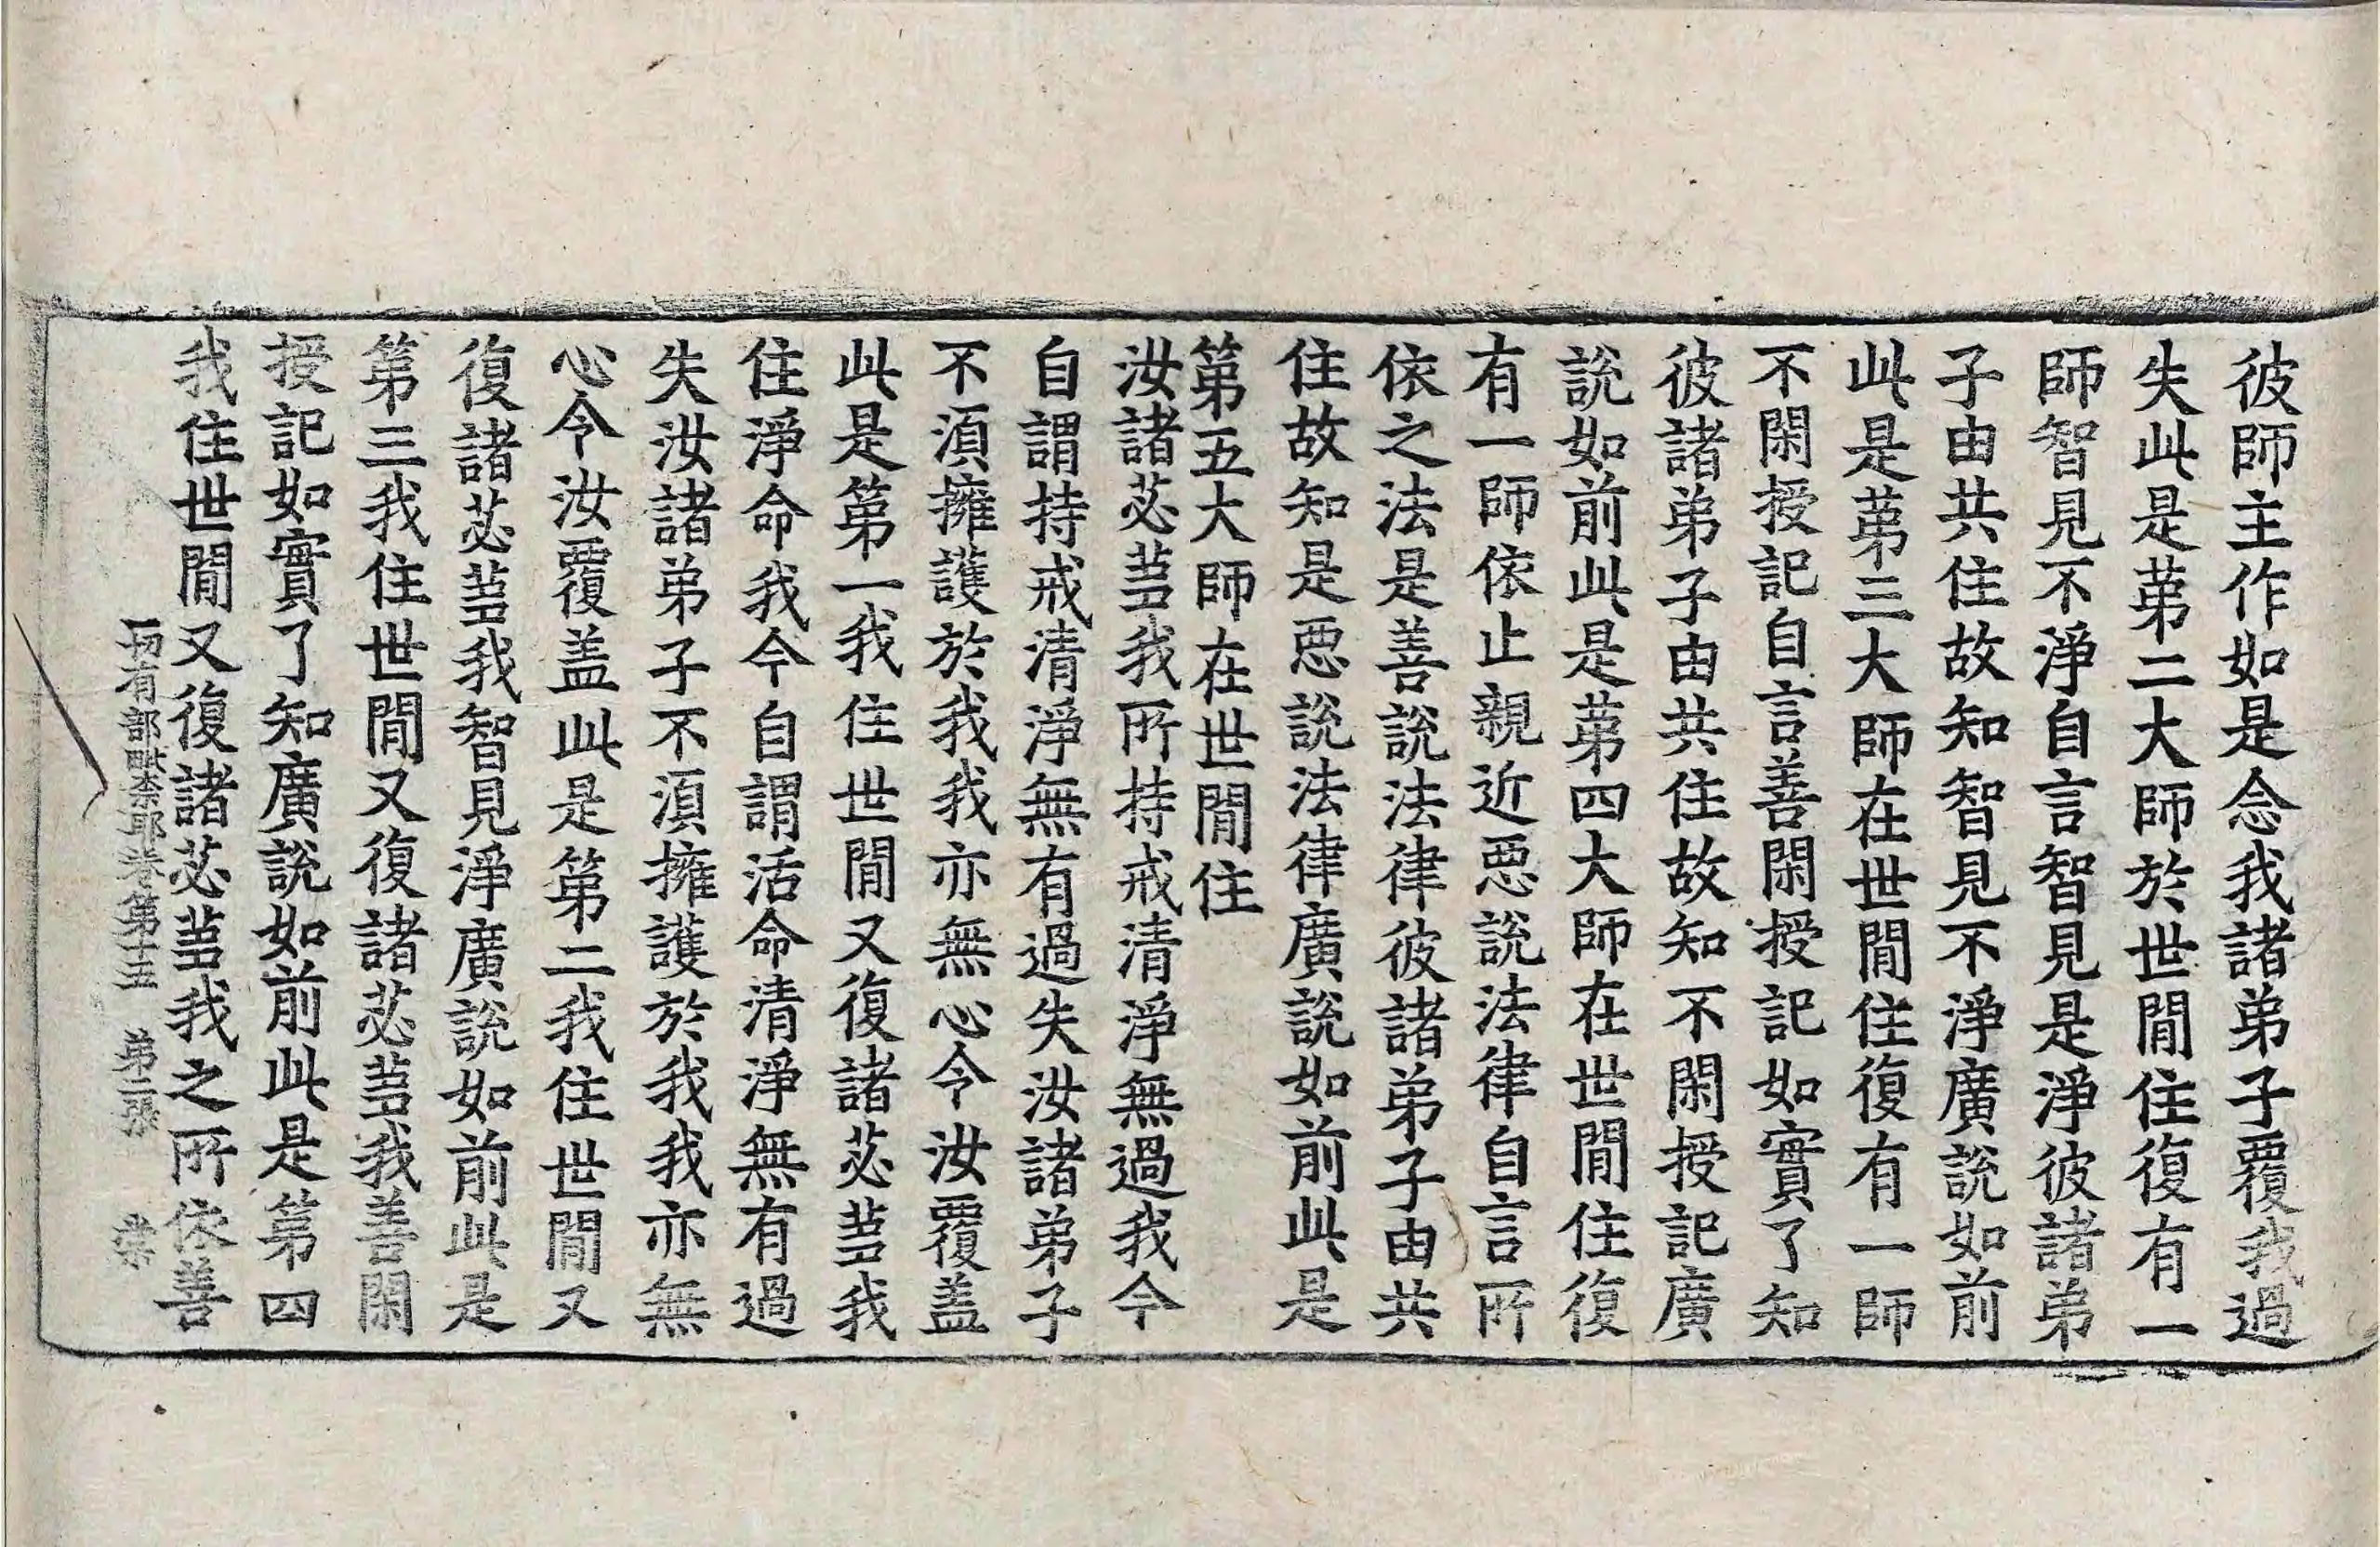 彼師主作如是念我諸弟子覆我過
失此是苐二大師於世間住復有一
師智見不淨自言智見是淨彼諸弟
子由共住故知智見不淨廣說如前
此是苐三大師在世間住復有一師
不閑授記自言善閑授記如實了知
彼諸弟子由共住故知不閑授記廣
說如前此是苐四大師在世間住復
有一師依止親近惡說法律自言所
依之法是善說法律彼諸弟子由共
住故知是惡說法律廣說如前此是
第五大師在世間住
汝諸苾蒭我所持戒清淨無過我今
自謂持戒清淨無有過失汝諸弟子
不湏擁護於我我亦無心令汝覆盖
此是第一我住世間又復諸苾蒭我
住淨命我今自謂活命清淨無有過
失汝諸弟子不湏擁護於我我亦無
心令汝覆盖此是第二我住世間又
復諸苾蒭我智見淨廣說如前此是
第三我住世間又復諸苾蒭我善閑
授記如實了知廣說如前此是第四
我住世間又復諸苾蒭我之所依善
一切有部毗奈耶卷第十五 苐二張 棠